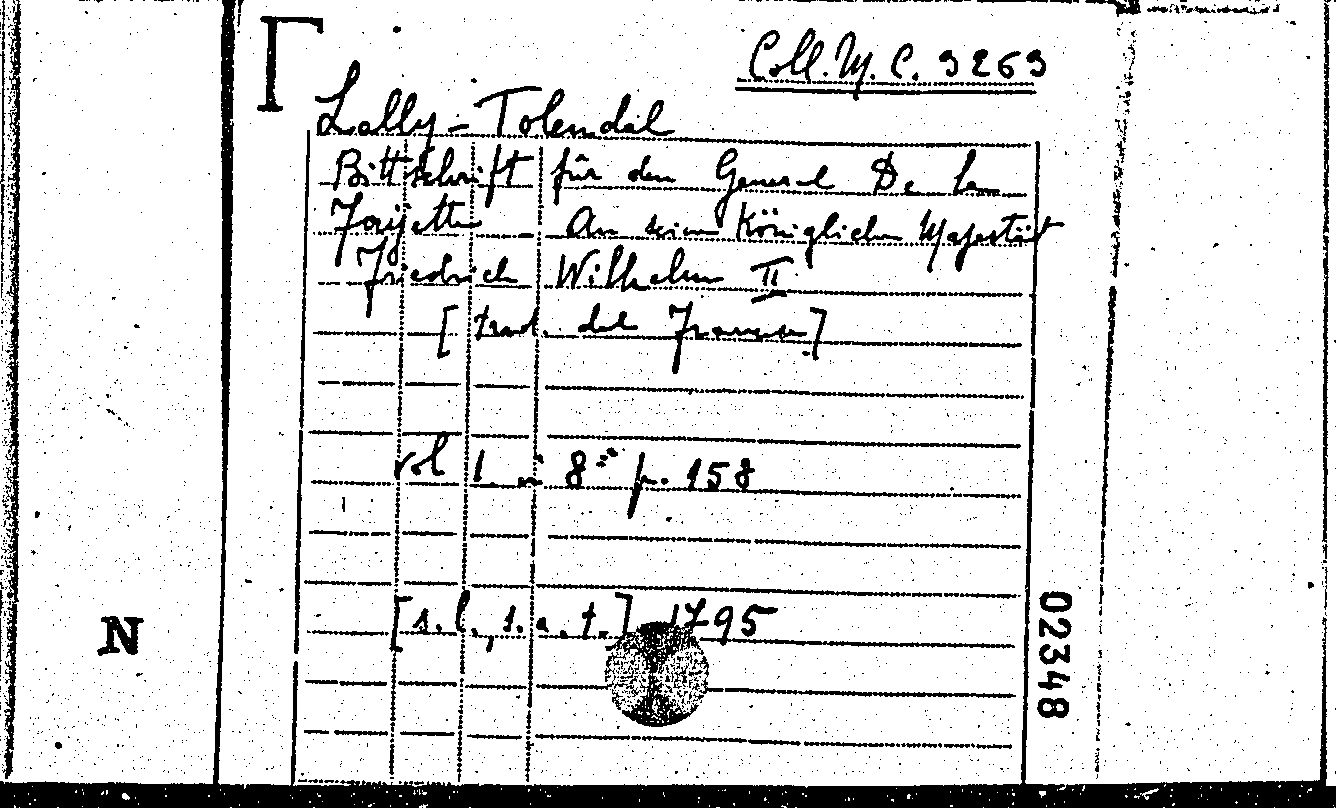 Coll. M. C. 3263
Lally - Tolendal
Bittschrift für den General De La
Fayette - An seine Königlichen Majestät
Friedrich Wilhelm II
[trad. dal Francese]
vol 1. in 8° p. 158
[s.l., s.a.t.] 1795
02348
N